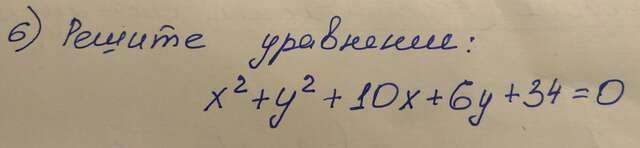 6) Решите уравнение:
x² + y² + 10x + 6y + 34 = 0